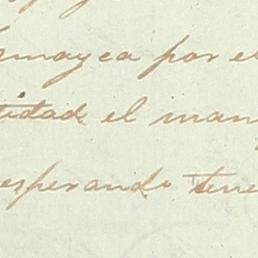 por el
tidad el man
esperando tene